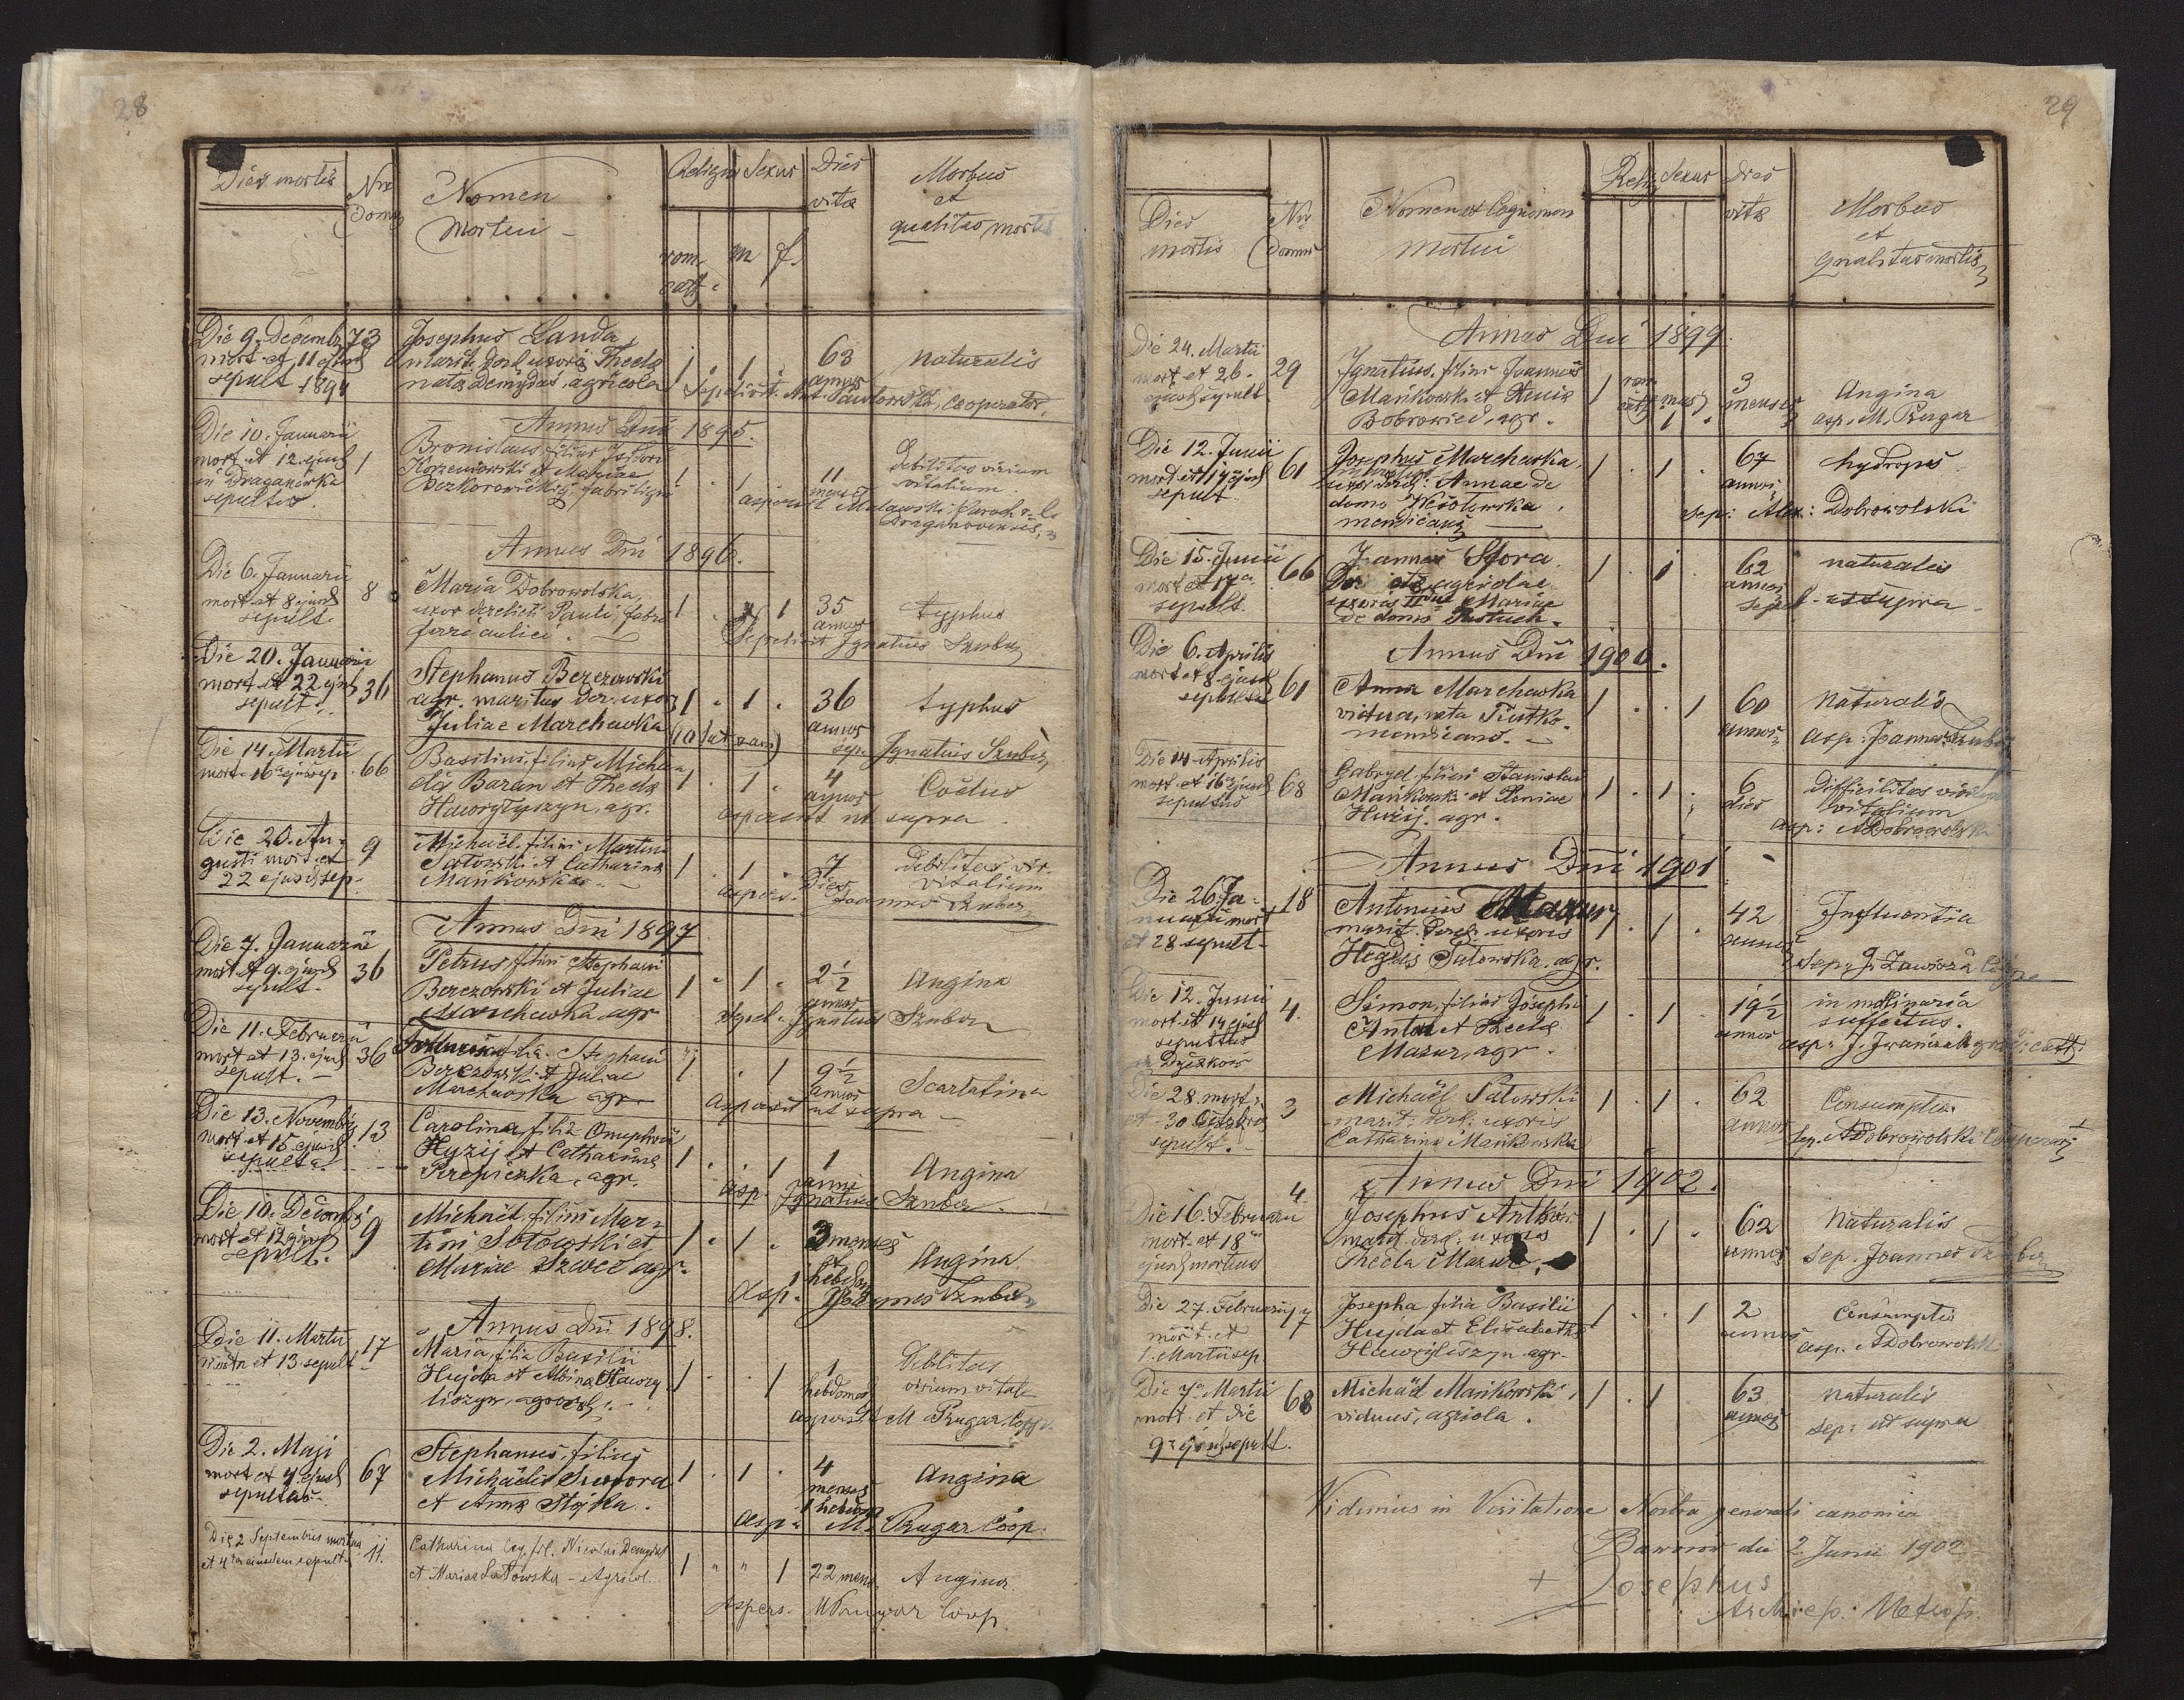 28
Dies mortis
Nrs Domus
Nomen
Mortui
Religio
Sexus
Dies
vitæ
Morbus
et
qualitas mortis
rom.
cath.
m
f.
Die 9. Decembr
mort et 11 ejusd
sepult 1894
73
Josephus Landa
marit. derel. uxoris Theclæ
natæ Demydas, agricola
1 . 1 .
63
annos
naturalis
Sepelivit Ant. Pawłowski, Cooperator.
Annus Dni 1895.
Die 10. Januarii
mort et 12 ejusd
in Draganówka
sepultus.
1
Bronislaus filius Isidori
Korzeniowski et Mariae
1 . 1
11
menses
Debilitas virium
vitalium
aspersit Paroch. r. l.
Draganovensis
Annus Dni 1896.
Die 6. Januarii
mort et 8 ejusd
sepult.
8
Maria Dobrowolska,
uxor derelicti Pauli, fabri
1 . 1
35
annos
typhus
Sepelivit Ignatius Szuber
Die 20. Januarii
mort et 22 ejusd
sepult.
36
Stephanus Berezowski
agr. maritus der. uxor
Juliae Marchewka
1 . 1 .
36
annos
typhus
sep. Ignatius Szuber
Die 14. Martii
mort. 16a ejus sep.
66
Basilius, filius Michae
lis Baran et Theclæ
Hawryłyszyn, agr.
1 . 1 .
4
annos
aspersit ut supra
Die 20. Au-
gusti mort. et
22 ejusd sep.
9
Michaël filius Martini
Sałowski et Catharinæ
Mańkowska
1 . 1 .
7
Dies
Debilitas vir.
vitalium
aspers. Joannes Szuber
Annus Dni 1897
Die 7. Januarii
mort. et 9. ejusd
sepult.
36
Petrus filius Stephani
Berezowski et Juliae
Marchewka agr
1 . 1 .
2 ½
annos
Angina
Ignatius Szuber
Die 11. Februarii
mort et 13. ejusd
sepult.
36
filia Stephani
Berezowski et Juliae
Marchewka agr
1 . . 1
9 ½
annos
Scarlatina
Aspersit ut supra
Die 13. Novembris
mort et 15 ejusd
sepulta
13
Carolina, filia Onuphrii
Hyzij et Catharinæ
Perepiczka, agr.
1 . . 1
1
anni
Angina
asp. Ignatius Szuber
Die 10. Decembris
mort et 12 ejusd
sepult.
9
Michaël, filius Mar-
tini Sołowski et
Mariae Szwec agr.
1 . 1 .
3 menses
et
1 hebdom
Angina
Asp. Joannes Szuber
Annus Dni 1898.
Die 11. Martii
mortu et 13. sepult
17
Maria, filia Basilii
Hujda et Albina Hawry
liszyn, agricol.
1 . . 1
1
hebdomad
Debilitas
virium vitale
aspersit M Prugar Coop.
Die 2. Maji
mort et 4 ejusd
sepultus
67
Stephanus, filius
Michaelis Siwora
et Annæ Stojka.
1 . 1 .
4
menses
1 hebdom
Angina
Asp. M. Prugar Coop.
Die 2 Septembris mortua
et 4 ta ejusdem sepulta
11.
Catharina leg. fil. Nicolai Demydas
et Mariae Sałowska - Agricol.
1 " " 1
22 mens.
Angina.
Aspers. M Prugar Coop.
29
Dies
mortis
Nrs
Domus
Nomen et Cognomen
Mortui
Relig
Sexus
Dies
vitæ
Morbus
et
qualitas mortis
Annus Dni 1899
Die 24. Martii
mort et 26.
ejusd sepult.
29
Ignatius, filius Joannis
Mańkowski et Xeniæ
Bobrowied, agr.
1 rom cath masc 1
3
menses
Angina
asp. M. Prugar
Die 12. Junii
mort et 14 ejusd
sepult
61
Josephus Marchewka
uxor derel: Annae de
domo
1 . 1 .
67
annos
hydrops
sep: Alex: Dobrowolski
Die 15. Junii
mort et 17a
sepult.
66
Joannes Sfora
agricolae
uxoris IIdae Mariæ
de domo Pastuch.
1 . 1 .
62
annos
naturales
sepel. ut supra
Annus Dni 1900.
Die 6. Aprilis
mort et 8 ejusd
sepulta
61
Anna Marchewka
vidua, nata
mendicans.
1 . . 1
60
annos
Naturalis
asp: Joannes Szuber
Die 14 Aprilis
mort et 16a ejusd
sepultus
68
Gabryel, filius Stanislai
Mańkowski et Xeniae
Huzij. agr.
1 . 1 .
6
dies
Difficilitas virium
vitalium
asp: ADobrowolski
Annus Dni 1901
Die 26. Ja-
nuarii mort
et 28 sepult-
18
Antonius Mazur
marit. derel: uxoris
1 . 1 .
42
annos
Influentia
Sep: J. Zawisza Coop.
Die 12. Junii
mort et 14 ejusd
sepultus
4.
Simon, filius Josephi
Antał et Theclæ
Mazur, agr.
1 . 1 .
19½
annos
in molinaria
Die 28 mort:
et 30 Octobris
sepult.
3
Michaël Sałowski
marit. derel: uxoris
Catharinæ Mańkowska
1 . 1 .
62
annos
Consumptio.
Sep. ADobrowolski Cooperator
Annus Dni 1902.
Die 16. Februarii
mort. et 18
ejusd mortuus
4
Josephus
marit derel: uxoris
Thecla Mazur.
1 . 1 .
62
annos
Naturalis
sep. Joannes Szuber
Die 27. Februarii
mort. et
1. Martii sep.
17
Josepha filia Basilii
Hujda et Elisabethæ
Hawryliszyn agr-
1 . . 1
2
annos
Consumptio
asp. ADobrowolski
Die 7a Martii
mort. et die
9a ejusd sepult.
68
Michaël Mańkowski,
viduus, agricola.
1 . 1
63
annos
naturalis
sep: ut supra
Vidimus in Visitatione Nostra generali canonica
Baworow die 2 Junii 1902
+ Josephus
Archiep. Metrop.